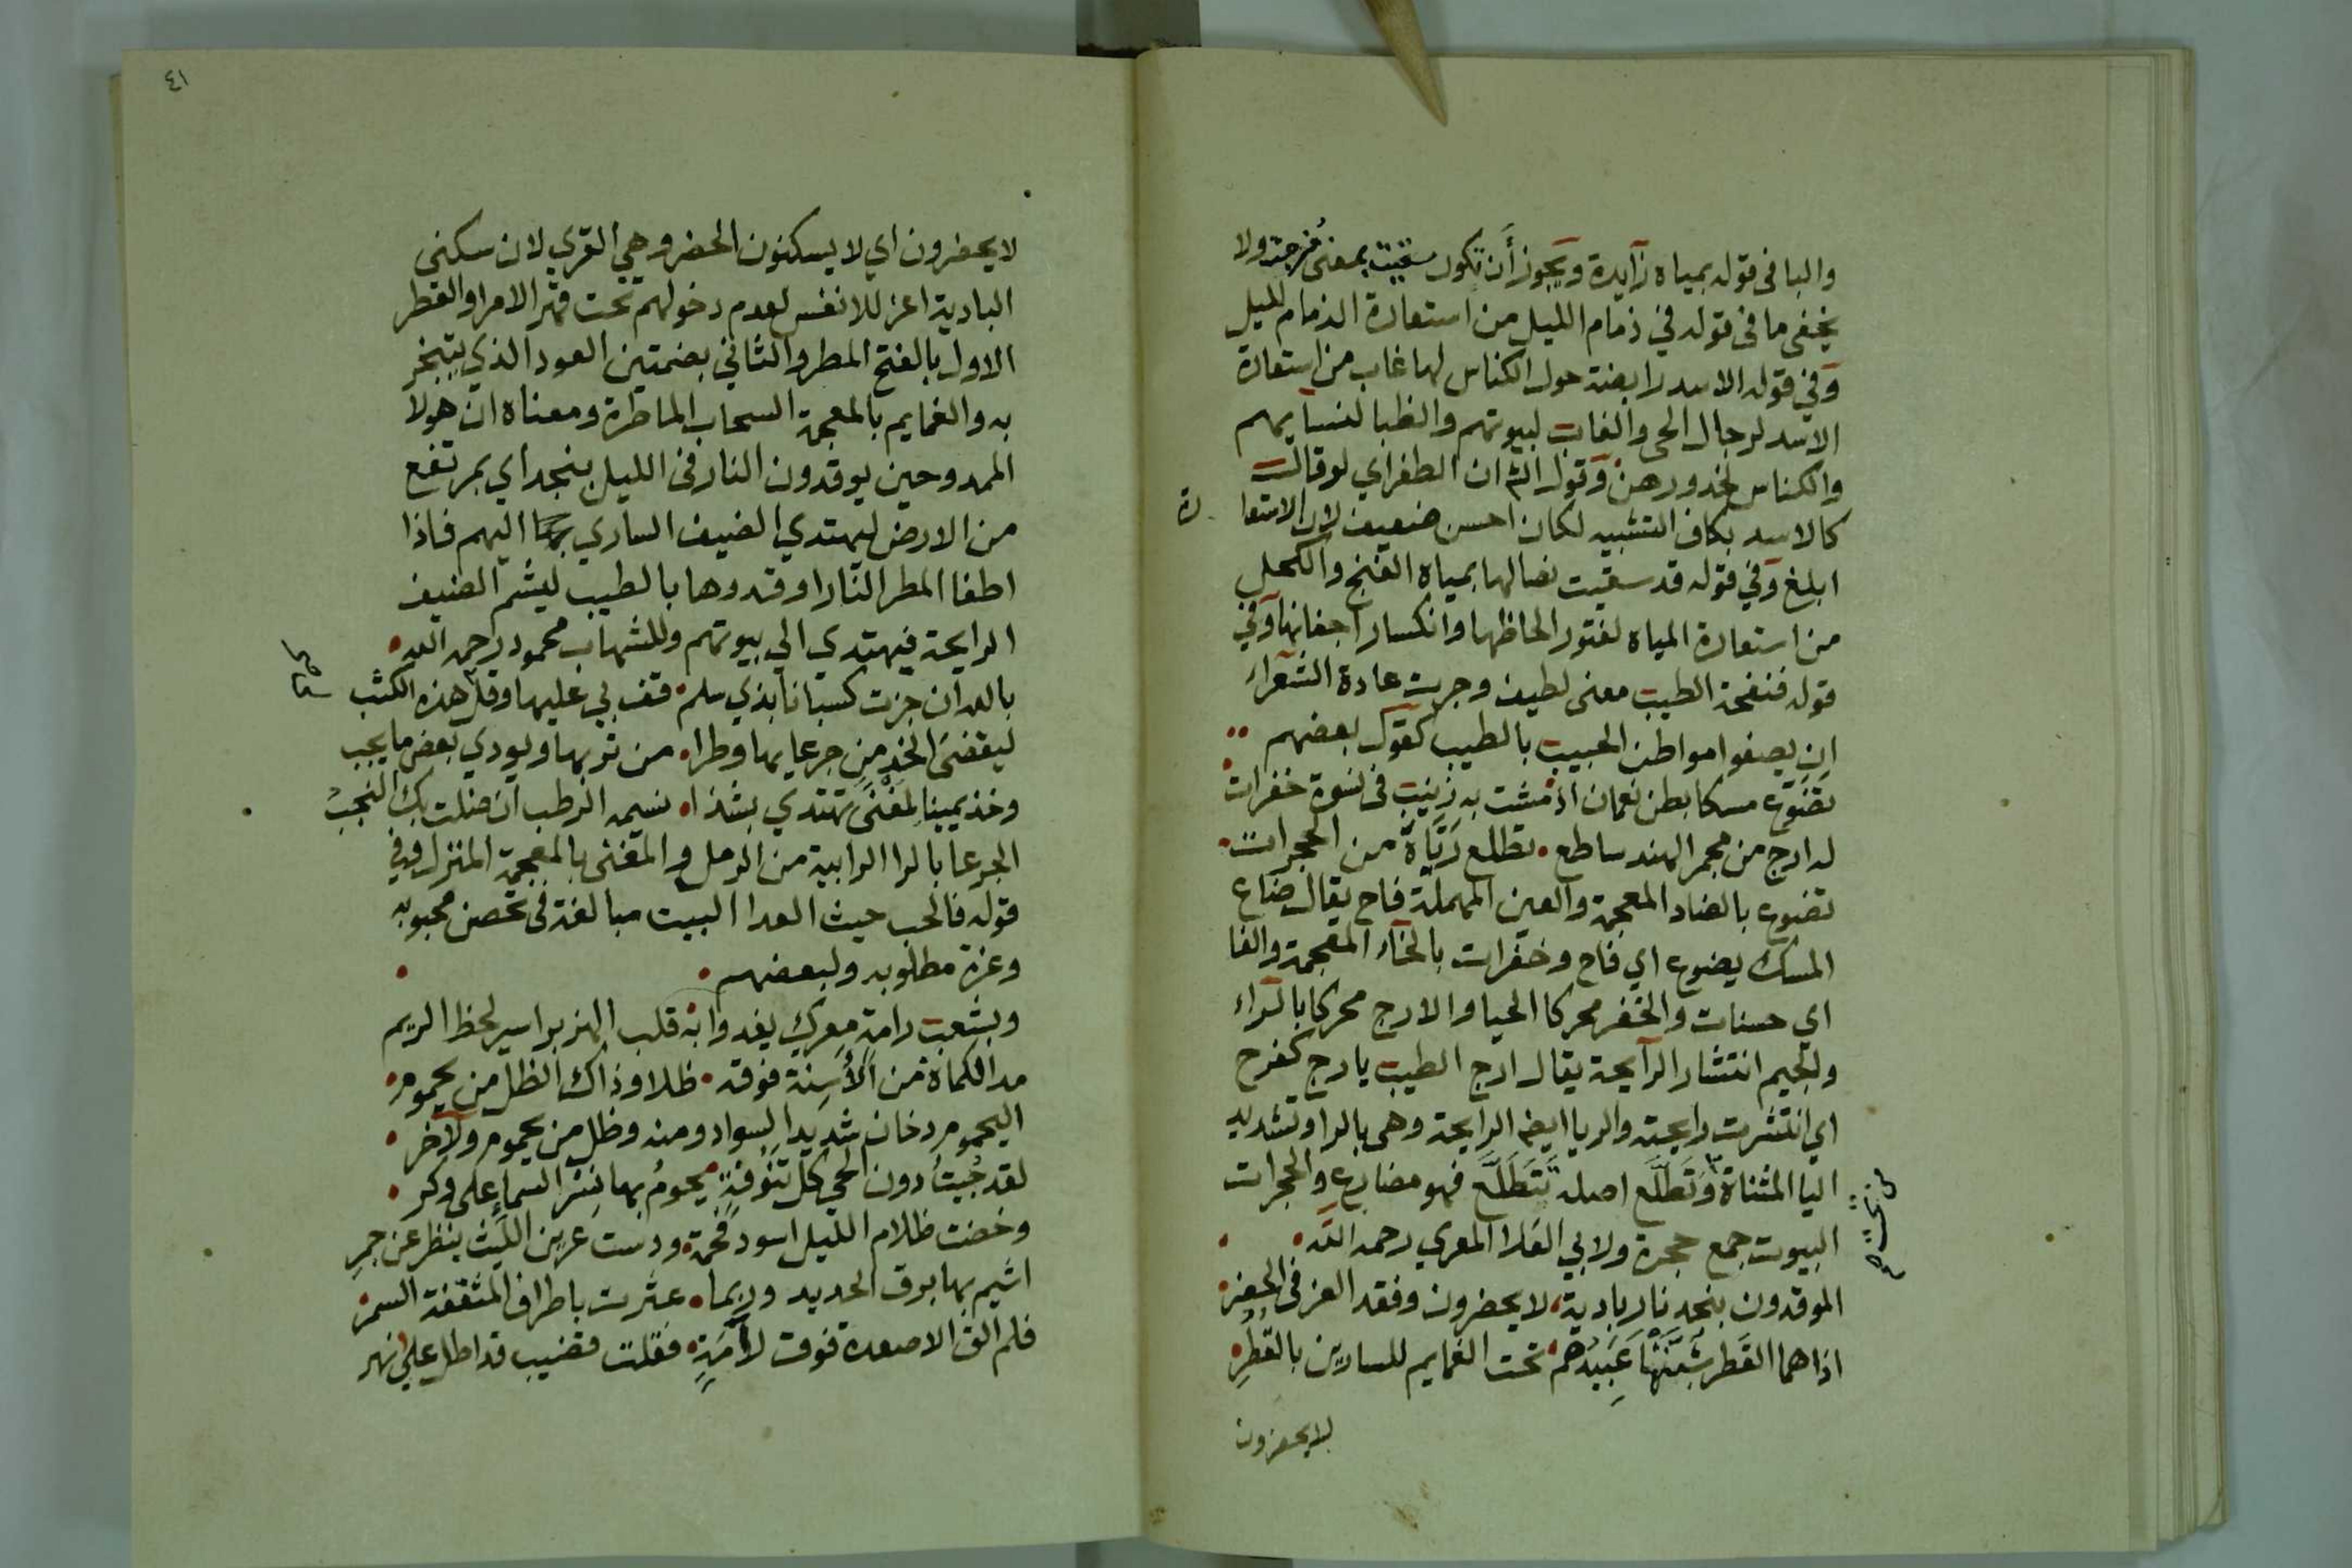 والبا فى قوله بمياه زآيدة ويجوز أن تكون سقيت بمعنى مُزجت ولا
يخفى ما فى قوله في ذمام الليل من استعارة الذمام لليل
وفي قوله الاسد رابضة حول الكناس لها غاب من استعارة
الاسد لرجال الحى والغاب لبيوتهم والظبا لنسايهم
والكناس لخدورهن وقول ان الطغراي لو قالت
كالاسد بكاف التشبيه لكان احسن ضعيف لان الاستعارة
ابلغ وفي قوله قد سقيت نصالها بمياه الغنج والكحل
من استعارة المياه لفتور الحاظها وانكسار اجفانها وفي
قوله فنفحة الطيب معنى لطيف وجرت عادة الشعراء
ان يصفوا مواطن الحبيب بالطيب كقول بعضهم
تضوّع مسكا بطن نعمان اذ مشت به زينب فى نسوة خفرات
له ارج من مجمر الهند ساطع تطلع رَيّاه من الحجرات
تضوع بالضاد المعجمة والعين المهملة فاح يقال ضاع
المسك يضوع اي فاح وخفرات بالخآء المعجمة والفا
اي حسنات والخفر محركا الحيا والارج محركا بالرّاء
والجيم انتشار الرآيحة يقال ارج الطيب يارج كفرح
اي انتشرت رايحته والريا ايضا الرايحة وهى بالرا وتشديد
اليا المثناة وتَطَلَّع اصله تَتَطَلَّع فهو مضارع والحجرات
البيوت جمع حجرة ولابي العَلا المعري رحمه الله
الموقدون بنجد نار بادية لا يحضرون وفقد العز فى الحضر
اذا هما القَطر شبَّتها عَبيدُهم تحت الغمايم للسارين بالقُطُرِ
لا يحضرون
٤١
لا يحضرون اي لا يسكنون الحضر وهي القري لان سكنى
البادية اعز للانفس لعدم دخولهم تحت قهر الامرا والقطر
الاول بالفتح المطر والثاني بضمتين العود الذي يتبخر
به والغمايم بالمعجمة السحاب الماطرة ومعناه ان هولا
الممدوحين يوقدون النار فى الليل بنجد اي بمرتفع
من الارض ليهتدي الضيف الساري بها اليهم فاذا
اطفا المطر النّار اوقدوها بالطيب ليشم الضيف
الرايحة فيهتدي الي بيوتهم وللشهاب محمود رحمه الله
بالله ان جزت كسبانا بذي سلم قف بي عليها وقل هذه الكثب
ليقضىَ الخد مِن جرعايها وطرا من تربها ويودي بعض ما يجب
وخذ يمينا لمغنًى تهتدي بشذا نسيمه الرطب ان ضلت بك النجبُ
الجرعا بالرا الرابية من الرمل والمغنى بالمعجمة المنزل وفي
قوله فالحب حيث العدا البيت مبالغة فى تحصن محبوبه
وعزة مطلوبه ولبعضهم
وبشعب رامة معرك يغدوا به قلب الهزبر اسير لحظ الريم
مد الكماة من الأَسِنة فوقه ظلا وذاك الظل من يحموم
اليحموم دخان شديد السواد ومنه وظل من يحموم ولآخر
لقد جُبتُ دون الحي كل تَنُوفةٍ يحومُ بها نسْر السماءِ على وكر
وخضت ظلام الليل اسود فحمة ودست عرين الليث ينظر عن جمرِ
اشيم بها برق الحديد وربما عثرت باطراف المثقفة السمر
فلم الق الا صعدة فوق لأمَةٍ فقلت قضيب قد اطل علي نهر